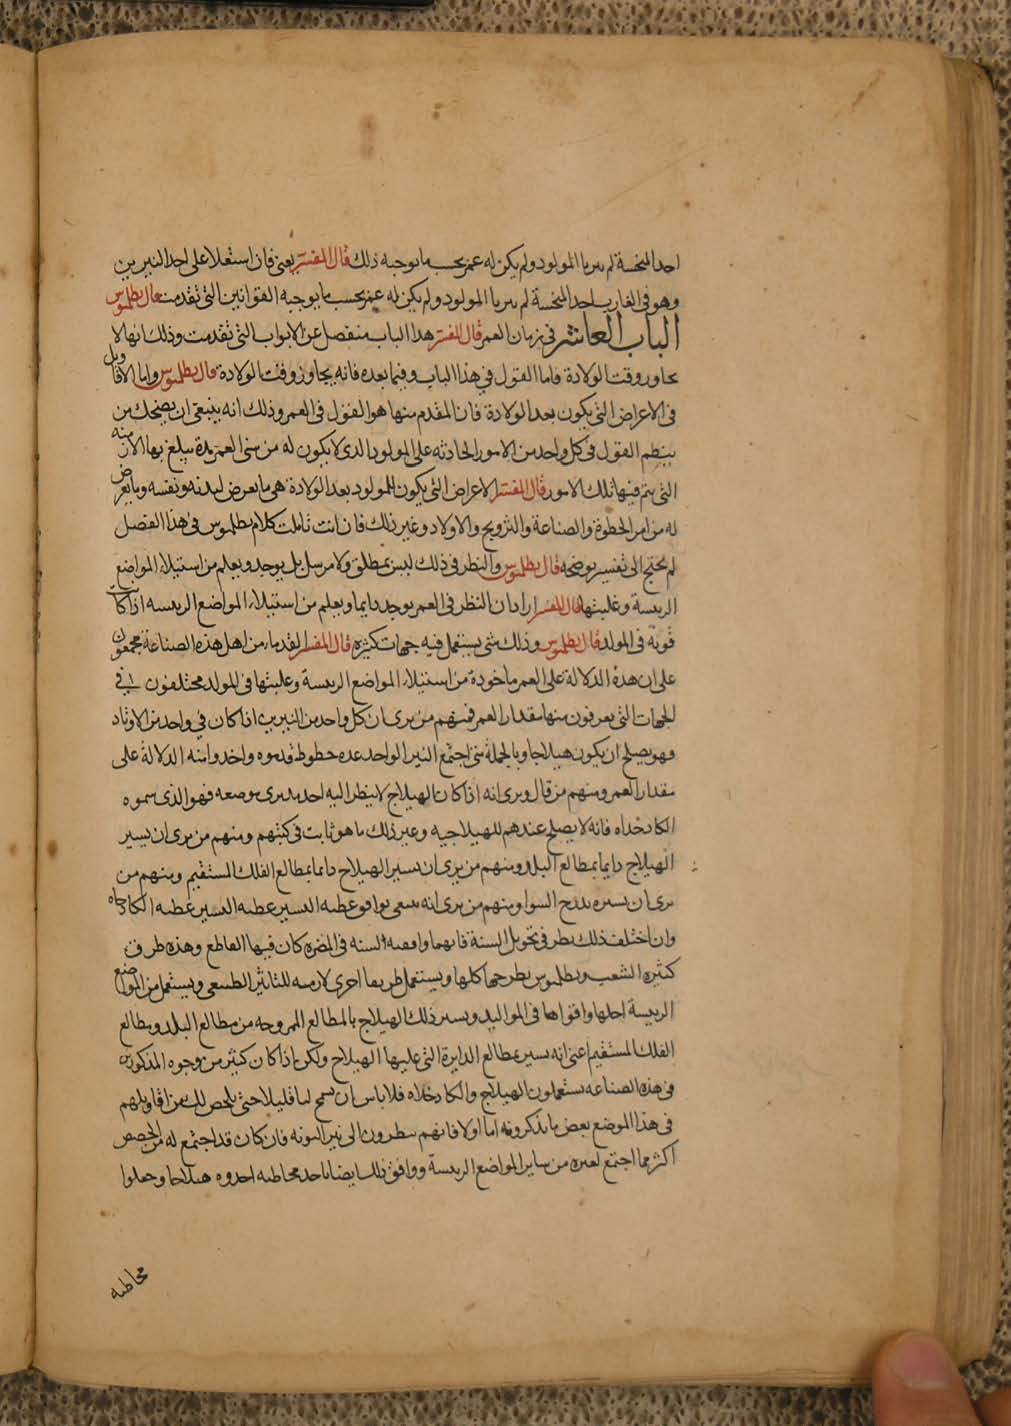 احد المنحسة لم يتربا المولود ولم يكن له عمر بحسب ما يوجبه ذلك قال المفسر يعنى فان استعلا على احد النيرين
وهو فى الغارب احد المنحسة لم يتربا المولود ولم يكن له عمر بحسب ما يوجبه القوانين التى تقدمت قال بطلميوس
الباب العاشر فى زمان العمر قال المفسر هذا الباب منفصل عن الابواب التى تقدمت وذلك انها لا
تجاوز وقت الولادة فاما القول فى هذا الباب وفيما بعده فانه يجاوز وقت الولادة قال بطلميوس واما الاقاويل
فى الاعراض التى يكون بعد الولادة فان المقدم منها هو القول فى العمر وذلك انه ينبغى ان يضحك من
ينظم القول فى كل واحد من الامور الحادثه على المولود الذى لا يكون له من سنى العمر مدة يبلغ بها الازمنه
التى يتم فيها تلك الامور قال المفسر الاعراض التى يكون للمولود بعد الولادة هى ما يعرض لبدنه ونفسه وما يعرض
له من امر الحظوة والصناعة والتزويج والاولاد وغير ذلك فان انت تاملت كلام بطلميوس فى هذا الفصل
لم تحتج الى تفسير يوضحه قال بطلميوس والنظر فى ذلك ليس بمطلق ولا مرسل بل يوجد ويعلم من استيلاء المواضع
الرييسة وغلبتها قال المفسر اراد ان النظر فى العمر يوجد دايما ويعلم من استيلاء المواضع الرييسه اذا كانت
قوية فى المولد قال بطلميوس وذلك شى يستعمل فيه جهات كثيره قال المفسر القدماء من اهل هذه الصناعة مجمعون
على ان هذه الدلالة على العمر ماخودة من استيلاء المواضع الرييسة وغلبتها فى المولد مختلفون فى
الجهات التى يعرفون منها مقدار العمر فمنهم من يرى ان كل واحد من النيرين اذا كان فى واحد من الاوتاد
فهو يصلح ان يكون هيلاجا وبالجملة متى اجتمع النير الواحد عده حظوظ قدموه واخدوا منه الدلالة على
مقدار العمر ومنهم من قال ويرى انه اذا كان الهيلاج لا ينظر اليه احد يدبرى موضعه فهو الذى سموه
الكادخداه فانه لا يصلح عندهم للهيلاجيه وغير ذلك ما هو ثابت فى كتبهم ومنهم من يرى ان يسير
الهيلاج دايما بمطالع البلد ومنهم من يرى ان يسير الهيلاج دايما بمطالع الفلك المستقيم ومنهم من
يرى ان يسيره بدرج السوا ومنهم من يرى انه ينبغى يوافق عطيه التسيير عطيه الكادخداه
وان اختلف ذلك نظر فى تحويل السنة فايهما وافقته السنه فى المضره كان فيها القاطع وهذه طرق
كثيره الشعب وبطلميوس يطرحها كلها ويستعمل طريقا اخرى لازمه للتاثير الطبيعى ويستعمل من المواضع
الرييسة اجلها واقواها فى المواليد ويسير ذلك الهيلاج بالمطالع الممزوجه من مطالع البلد ومطالع
الفلك المستقيم اعنى انه يسير بمطالع الدايرة التى عليها الهيلاج ولكن اذا كان كثير من وجوه المذكورين
فى هذه الصناعه يستعملون الهيلاج والكادخداه فلا باس ان نسمح لنا قليلا حتى نلخص لك من اقاويلهم
فى هذا الموضع بعض ما يذكرونه اما اولا فانهم ينظرون الى نير النوبه فان كان قد اجتمع له من الحصص
اكثر مما اجتمع لغيره من ساير المواضع الرييسة ووافق ذلك ايضا باحد مخاطبه اخدوه هيلاجا وجعلوا
مخاطبه